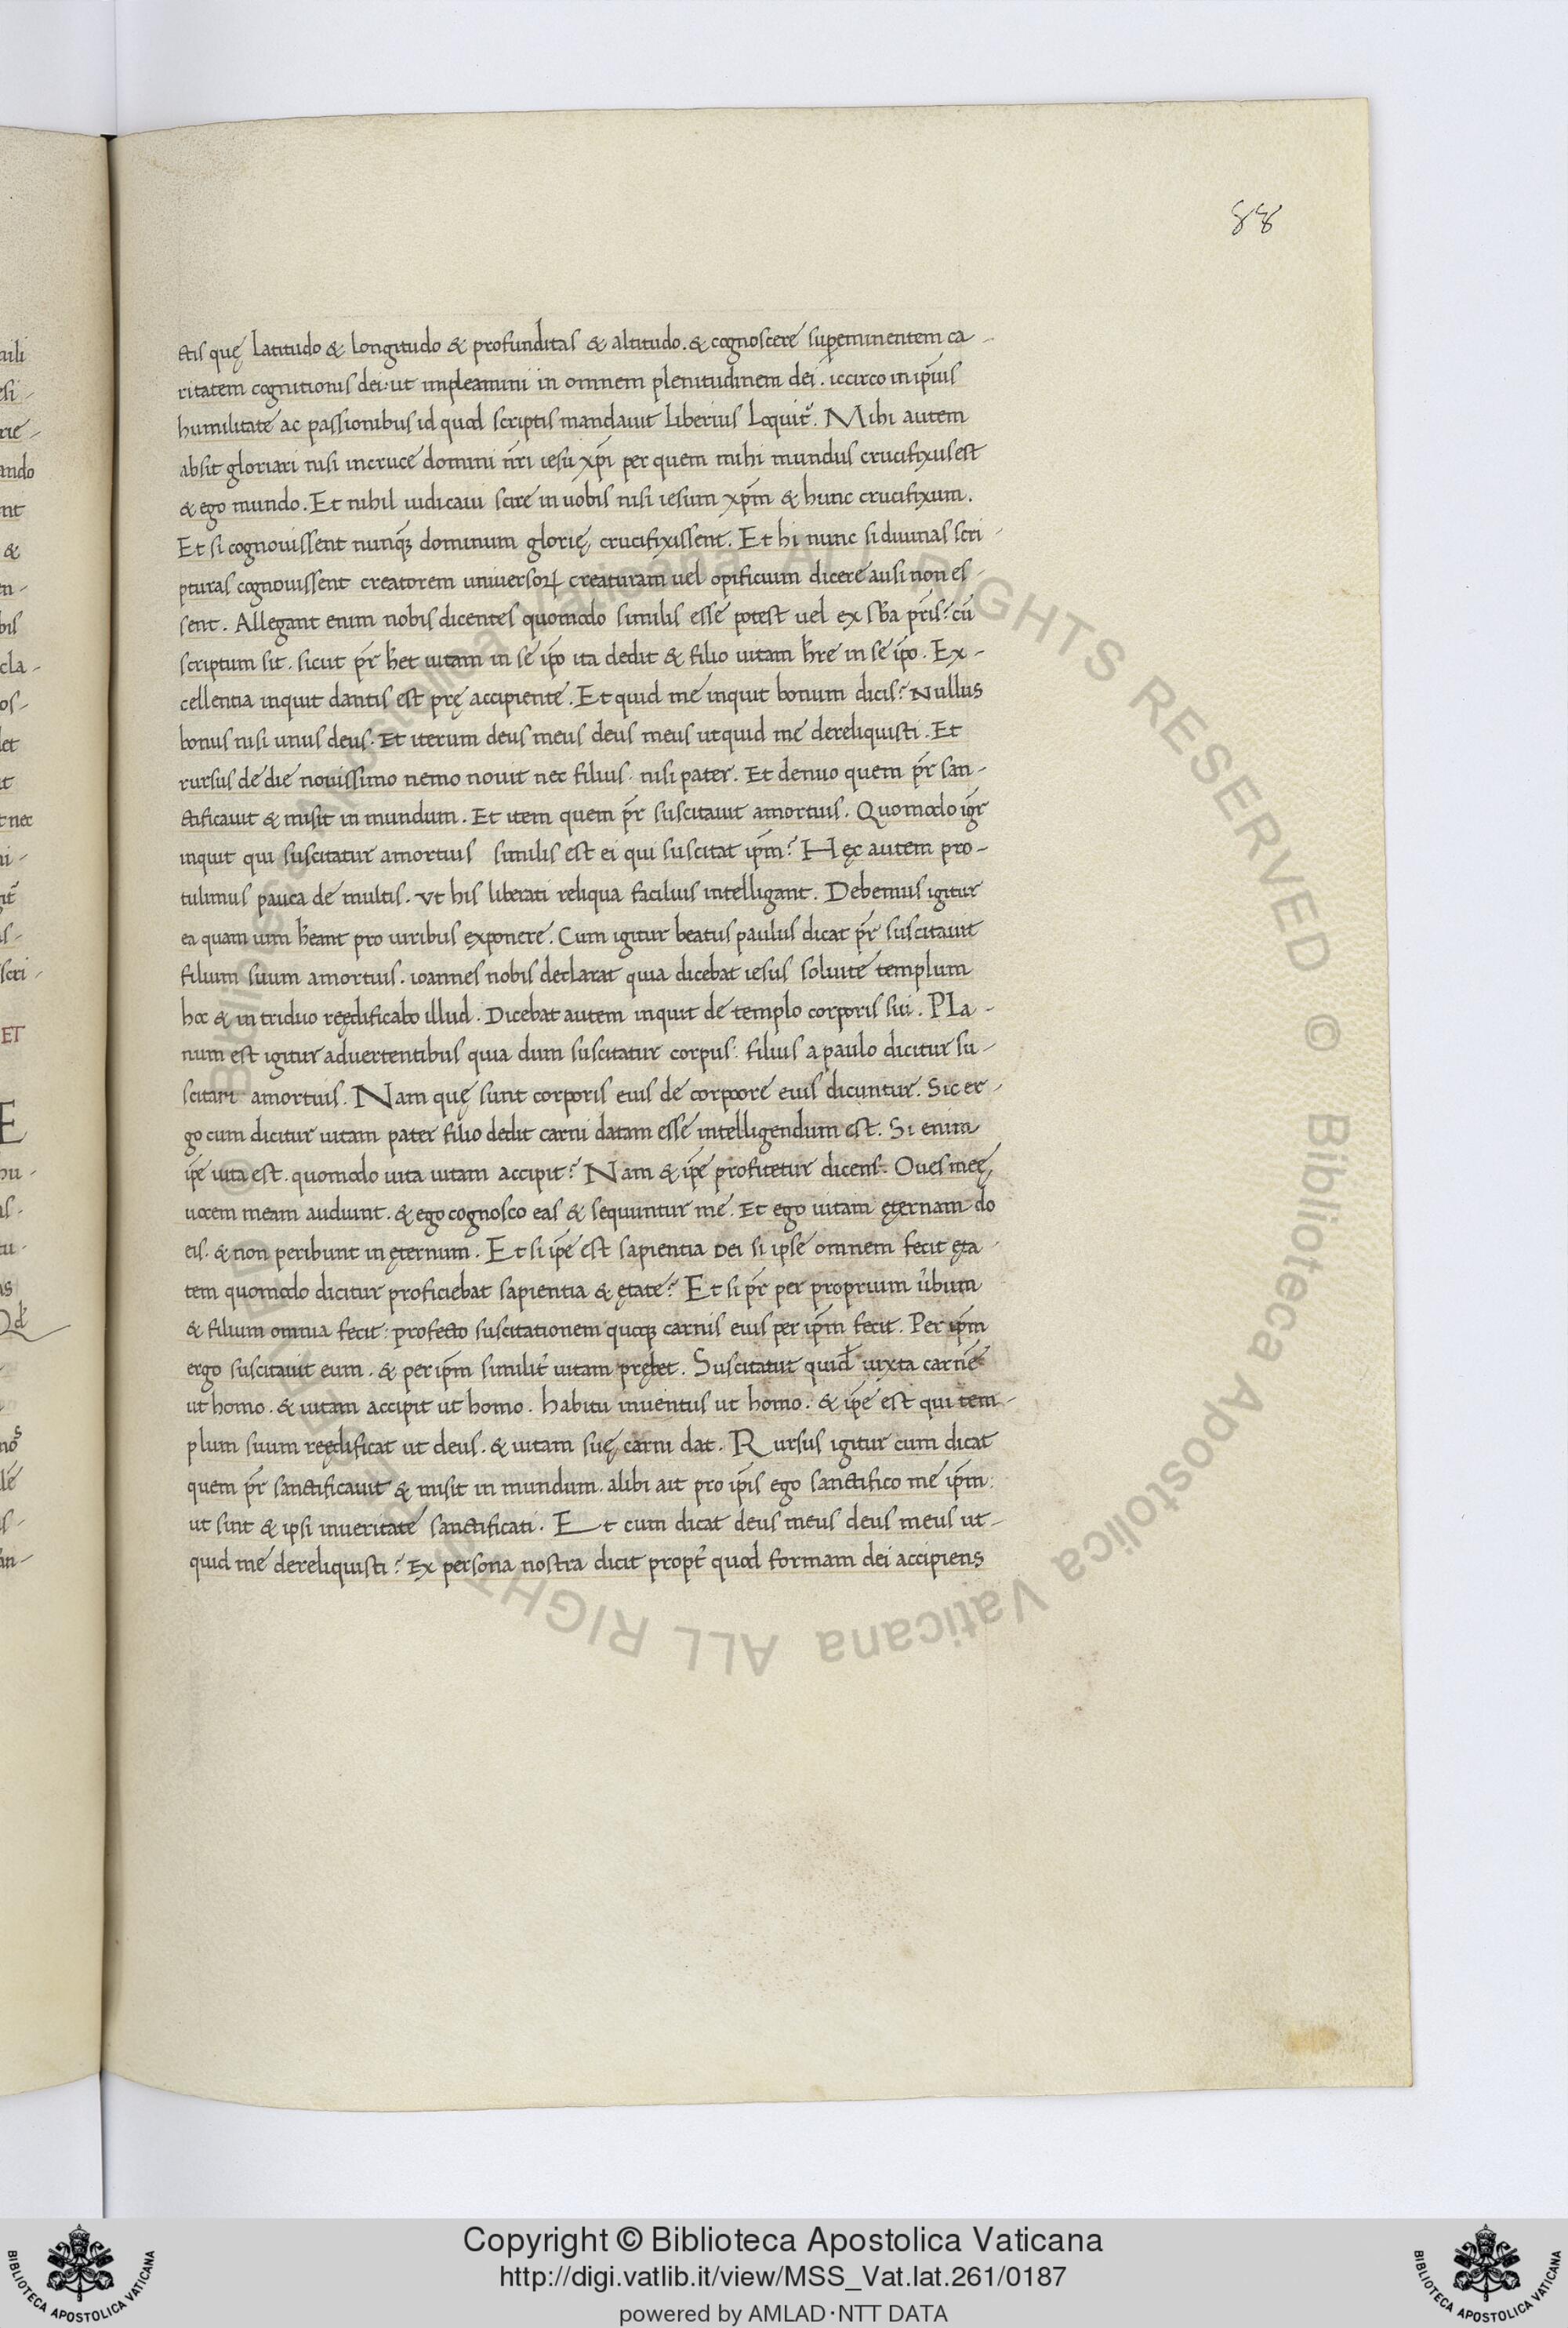 88
ctis quę latitudo & longitudo & profunditas & altitudo. & cognoscere supeminentem ca-
ritatem cognitionis dei: ut impleamini in omnem plenitudinem dei. iccirco in ip̄ius
humilitate ac passionibus id quod scriptis mandauit liberius loquit᷑. Mihi autem
absit gloriari nisi incruce domini nr̄i iesu xp̄i per quem mihi mundus crucifixus est
& ego mundo. Et nihil iudicaui scire in uobis nisi iesum xp̄m & hunc crucifixum.
Et si cognouissent nunqꝫ dominum glorię crucifixissent. Et hi nunc si diuinas scri-
pturas cognouissent creatorem uniuersoꝝ creaturam uel opificium dicere ausi non es-
sent. Allegant enim nobis dicentes quomodo similis esse potest uel ex sb̄a pr̄is? cū
scriptum sit. sicut pr̄ h̄et uitam in se ip̄o ita dedit & filio uitam h̄re in se ip̄o. Ex-
cellentia inquit dantis est prę accipiente. Et quid me inquit bonum dicis? Nullus
bonus nisi unus deus. Et iterum deus meus deus meus utquid me dereliquisti. Et
rursus de die nouissimo nemo nouit nec filius. nisi pater. Et denuo quem pr̄ san-
ctificauit & misit in mundum. Et item quem pr̄ suscitauit amortuis. Quomodo igr̄
inquit qui suscitatur amortuis similis est ei qui suscitat ip̄m? Hęc autem pro-
tulimus pauca de multis. Vt his liberati reliqua facilius intelligant. Debemus igitur
ea quam uim h̄eant pro uiribus exponere. Cum igitur beatus paulus dicat pr̄ suscitauit
filium suum amortuis. ioannes nobis declarat quia dicebat iesus soluite templum
hoc & in triduo reędificabo illud. Dicebat autem inquit de templo corporis sui. Pla-
num est igitur aduertentibus quia dum suscitatur corpus: filius a paulo dicitur su-
scitari amortuis. Nam quę sunt corporis eius de corpore eius dicuntur. Sic er-
go cum dicitur uitam pater filio dedit carni datam esse intelligendum est. Si enim
ip̄e uita est. quomodo uita uitam accipit? Nam & ip̄e profitetur dicens. Oues meę
uocem meam audiunt. & ego cognosco eas & sequuntur me. Et ego uitam ęternam do
eis. & non peribunt in ęternum. Et si ip̄e est sapientia Dei si ipse omnem fecit ęta
tem quomodo dicitur proficiebat sapientia & ętate? Et si pr̄ per proprium u̅bum
& filium omnia fecit: profecto suscitationem quoqꝫ carnis eius per ip̄m fecit. Per ip̄m
ergo suscitauit eum. & per ip̄m similit᷑ uitam pręhet. Suscitatur quid̄ iuxta carnē
ut homo. & uitam accipit ut homo. habitu inuentus ut homo. & ip̄e est qui tem-
plum suum reędificat ut deus. & uitam suę carni dat. Rursus igitur cum dicat
quem pr̄ sanctificauit & misit in mundum. alibi ait pro ip̄is ego sanctifico me ip̄m:
ut sint & ipsi inueritate sanctificati. Et cum dicat deus meus deus meus ut-
quid me dereliquisti? Ex persona nostra dicit propt᷑ quod formam dei accipiens
Copyright © Biblioteca Apostolica Vaticana
http://digi.vatlib.it/view/MSS_Vat.lat.261/0187
powered by AMLAD·NTT DATA